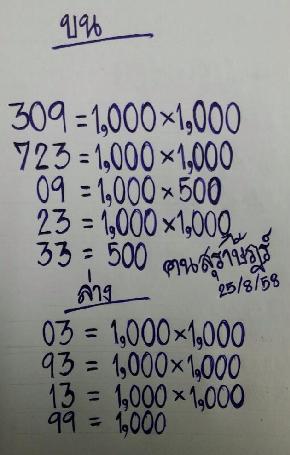 บน
309 = 1,000 × 1,000
723 = 1,000 × 1,000
09 = 1,000 × 500
23 = 1,000 × 1,000
33 = 500
คนสุราษฎร์
25/8/58
ล่าง
03 = 1,000 × 1,000
93 = 1,000 × 1,000
13 = 1,000 × 1,000
99 = 1,000